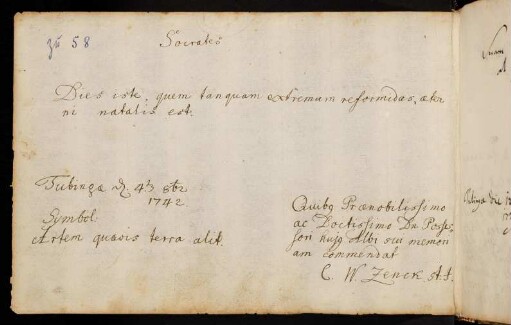 zu 58
Socrates
Dies iste, quem tanquam extremum reformidas, aeter
ni natalis est.
Tubingae d. 4t 8br
1742
Symbol:
Artem quaevis terra alit.
Praenobilissimo
ac Doctissimo Dn Posses
sori huj9 Albi sui memori
am commendat
C. W. Zenck